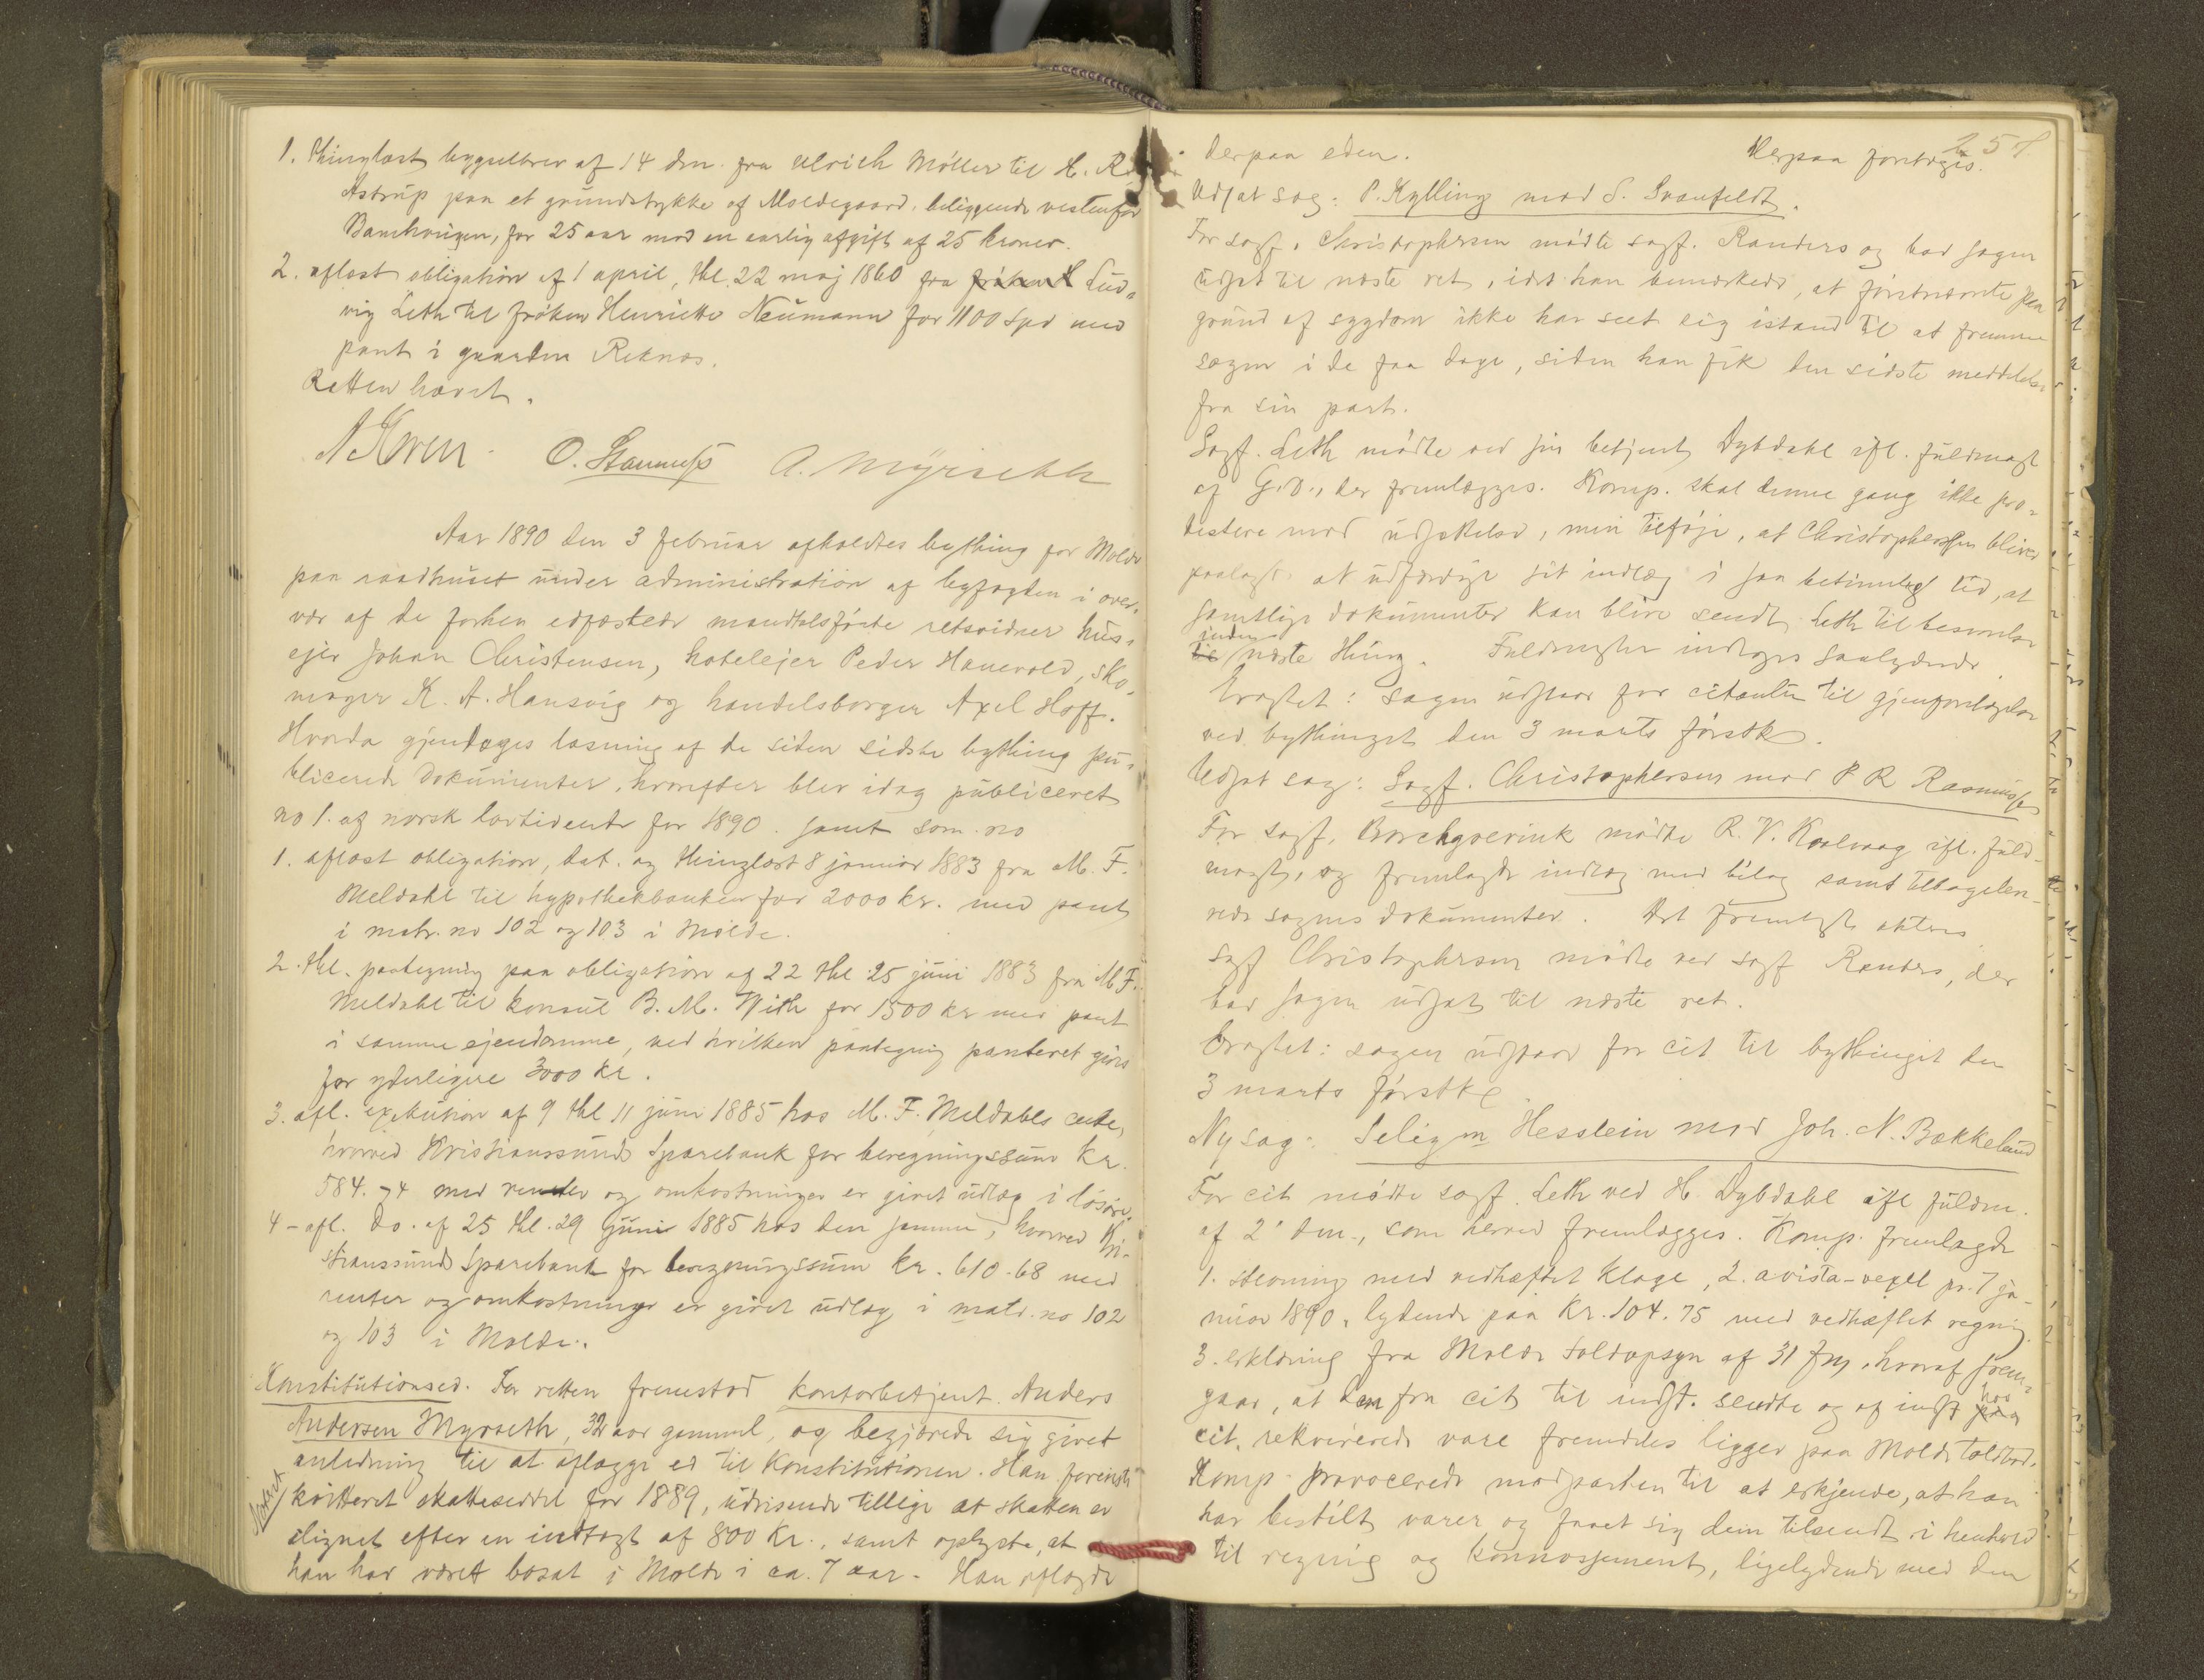 1. Thinglæst bygselbrev af 14 dm. fra Ulrich Møller til H. R.
Astrup paa et grundstykke af Moldegaard, beliggende vestenfor
Bamhougen, for 25 aar mod en aarlig afgift af 25 kroner.
2. aflæst obligation af 1 april, thl. 22 maj 1860 fra Lud-
vig Leth til frøken Henriette Neumann for 1100 Spd med
pant i gaarden Reknæs.
Retten hævet.
O. Stanness A. Myrseth
Aar 1890 den 3 februar afholdtes bything for Molde
paa raadhuset under administration af byfogden i over-
vær af de forhen edfæstede mandtalsførte retsvidner hus-
ejer Johan Christensen, hotelejer Peder Hauevold, sko-
mager K. A. Hansvig og handelsborger Axel Hoff.
Hvorda gjentoges læsning af de siden sidste bything pu-
blicerede dokumenter, hvorefter blev idag publiceret
no 1 af norsk lovtidende for 1890. samt som no
1. aflæst obligation, dat. og thinglæst 8 januar 1883 fra M. F.
Meldahl til hypothekbanken for 2000 kr. med pant
i matr. no 102 og 103 i Molde.
2. thl. paategning paa obligation af 22 thl 25 juni 1883 fra M. F.
Meldahl til konsul B. M. With for 1500 kr med pant
i samme ejendomme, ved hvilken paategning panteret gives
for yderligere 3000 kr.
3. afl. exekution af 9 thl 11 juni 1885 hos M. F. Meldahls enke,
hvorved Kristianssunds Sparebank for beregningssum kr.
584.74 med renter og omkostninger er givet udlæg i løsøre.
4 - afl. do. af 25 thl. 29 juni 1885 hos den samme, hvorved Kri-
stianssunds Sparebank for beregningssum kr. 610.68 med
renter og omkostninger er givet udlæg i matr. no 102
og 103 i Molde.
Konstitutionsed. For retten fremstod kontorbetjent Anders
Andersen Myrseth, 32 aar gammel, og begjærede sig givet
anledning til at aflægge ed til Konstitutionen. Han foreviste
Noteret
kvitteret skatteseddel for 1889, udvisende tillige at skatten er
lignet efter en indtægt af 800 kr., samt oplyste, at
han har været bosat i Molde i ca. 7 aar. Han aflagde
257.
derpaa eden. Derpaa foretoges.
Udsat sag: P. Kylling mod S. Svanfeldt.
For sagf. Christophersen mødte sagf. Randers og bad sagen
udsat til næste ret, idet han bemærkede, at førstnævnte paa
grund af sygdom ikke har seet sig istand til at fremme
sagen i de faa dage, siden han fik den sidste meddelelse
fra sin part.
Sagf. Leth mødte ved sin betjent Dybdahl ifl. fuldmagt
af G. D., der fremlægges. Komp. skal denne gang ikke pro-
testere mod udsættelse, men tilføje, at Christophersen bliver
paalagt at udfærdige sit indlæg i saa betimelig tid, at
samtlige dokumenter kan blive sendt Leth til besvarelse
inden
næste thing. Fuldmagten indtages saalydende
Eragtet: sagen udstaar for citanten til gjenforelæggelse
ved bythinget den 3 marts førstk.
Udsat sag: Sagf. Christophersen mod P R Rasmussen
For sagf. Borchgrevink mødte R. V. Kolvaag ifl. fuld-
magt, og fremlagde indlæg med bilag samt tilbagelev-
rede sagens dokumenter. Det fremlagte akteres
sagf Christophersen mødte ved sagf Randers, der
bad sagen udsat til næste ret.
Eragtet: sagen udstaar for cit til bythinget den
3 marts førstk.
Ny sag: Seligm Hesslein mod Joh. N. Bækkelund
For cit mødte sagf. Leth ved H. Dybdahl ifl fuldm.
af 2 dm., som herved fremlægges. Komp. fremlagde
1. stevning med vedhæftet klage, 2. avista-vexel pr. 7 ja-
nuar 1890, lydende paa kr. 104.75 med vedhæftet regning
3. erklæring fra Molde toldopsyn af 31 f.m., hvoraf frem-
gaar, at den fra cit til indst. sendte og af indst hos
cit. rekvirerede vare fremdeles ligger paa Molde toldbod.
Komp. provocerede modparten til at erkjende, at han
har bestilt varer og faaet sig dem tilsendt i henhold
til regning og konnossement, ligelydende med den